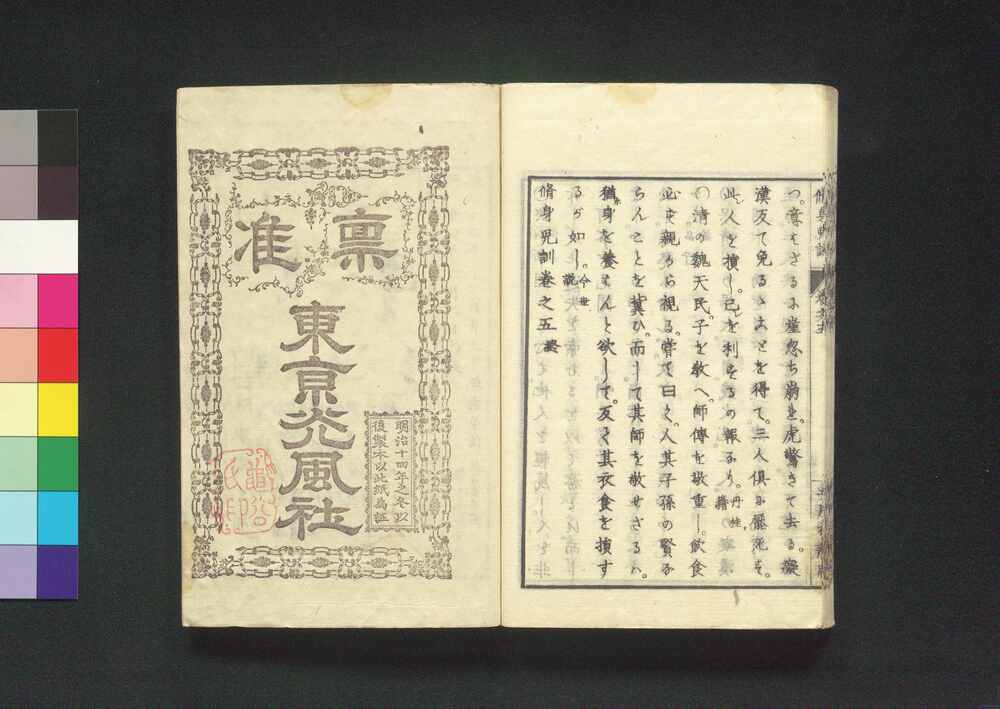 つ。意はざるに崖忽ち崩る。虎驚きて去る。癡
漢反て免るゝことを得て。三人俱に壓死す。
此人を損し。己を利するの報なり。丹桂籍
○清の魏天民。子を敎へ。師傅を敬重し。飲食
必す親から視る。嘗て曰く。人其子孫の賢な
らんことを冀ひ。而して其師を敬せざるハ。
猶身を養はんと欲して。反て其衣食を損す
るが如し。今世説
脩身児訓巻之五 終
禀准
東京光風社
明治十四年之冬以
後製本以此紙為証